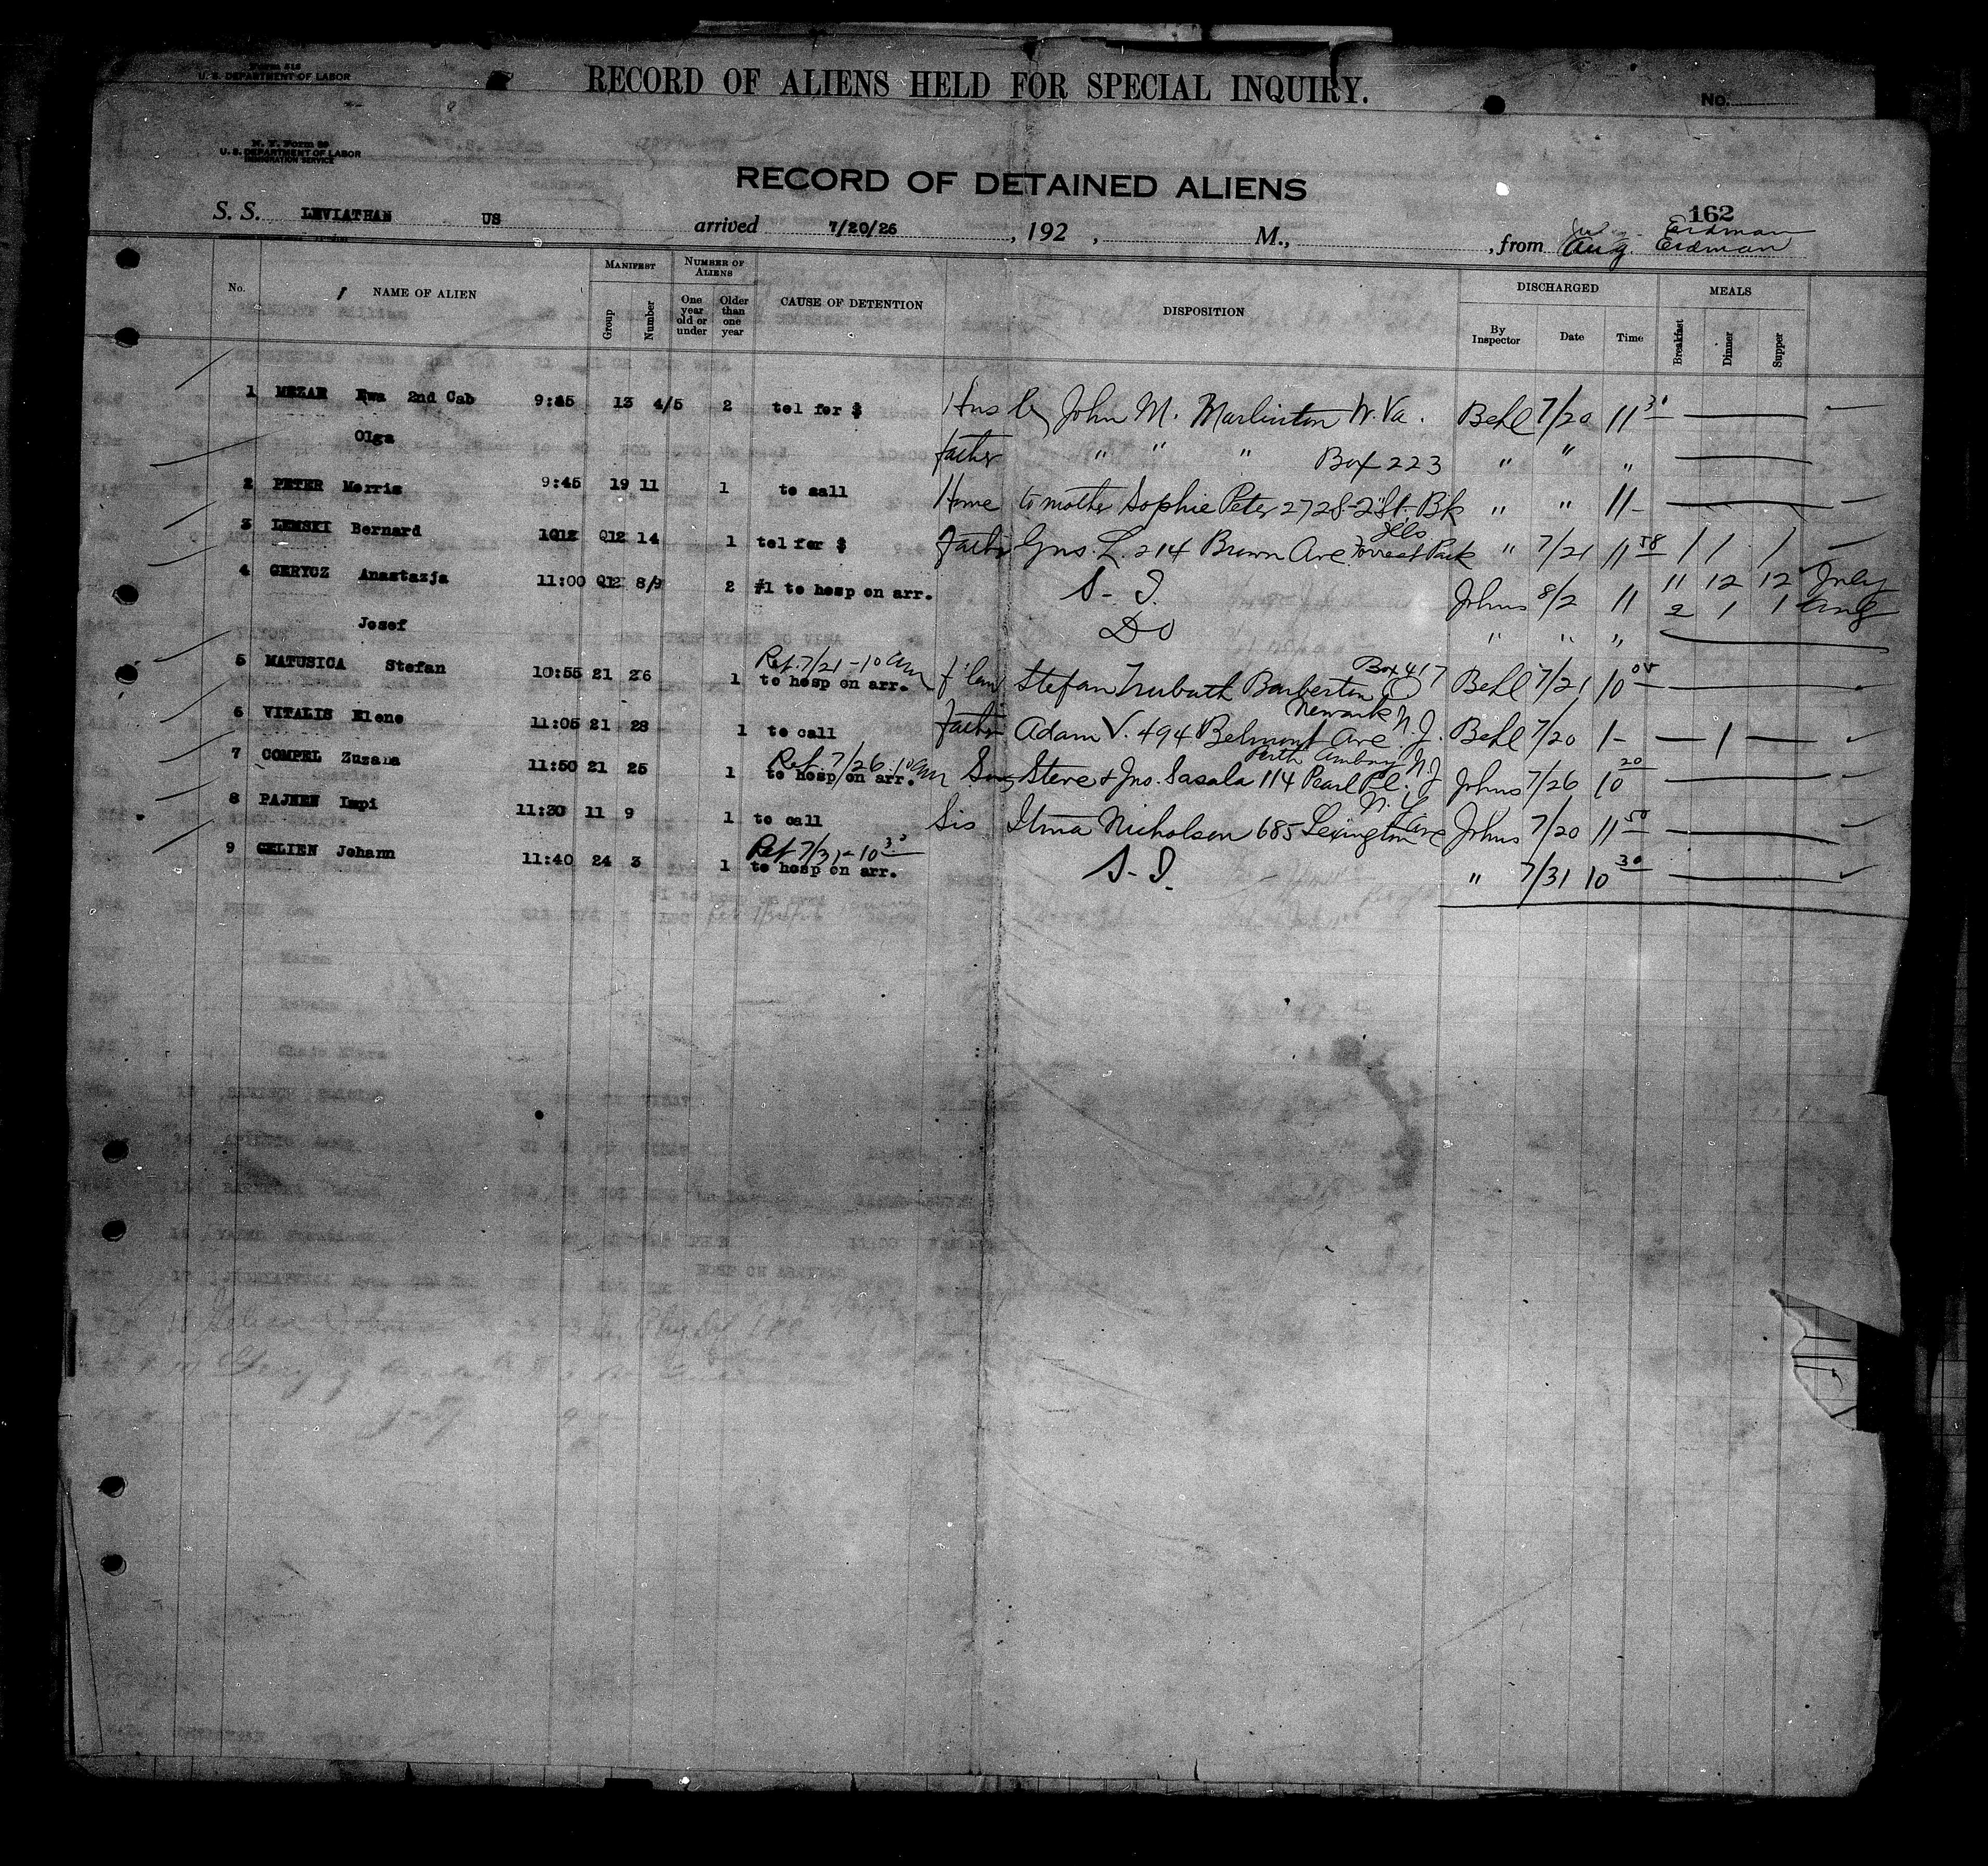 Form 518
U. S. DEPARTMENT OF LABOR
RECORD OF ALIENS HELD FOR SPECIAL INQUIRY.
No.
U. S. DEPARTMENT OF LABOR
IMMIGRATION SERVICE
RECORD OF DETAINED ALIENS
162
Erdman
S. S. LEVIATHAN US arrived 7/20/26 , 192 , M., , from Aug. Erdman
No. NAME OF ALIEN MANIFEST Group Number NUMBER OF ALIENS One year old or under Older than one year CAUSE OF DETENTION DISPOSITION DISCHARGED By Inspector Date Time MEALS Breakfast Dinner Supper
1 MEZAR Ewa 2nd Cab 9:45 13 4/5 2 tel for $ Hus John M. Marlinton W. Va. Behl 7/20 11 30
Olga father " " " Box 223 " " "
2 PETER Morris 9:45 19 11 1 to call Home to mother Sophie Peter 2728-2 St. Bk " " 11-
3 LEMSKI Bernard 1012 Q12 14 1 tel for $ father Gus. L. 214 Brown Ave Forrest Park Ills " 7/21 11 58 1 1 1
4 GERYCZ Anastazja 11:00 Q12 8/9 2 #1 to hosp on arr. S. I. Johns 8/2 11 11 12 12 July
2 1 1 Aug
Josef Do " " "
Ret. 7/21-10 am Box 417
5 MATUSICA Stefan 10:55 21 26 1 to hosp on arr. Stefan Trubath Barberton O Behl 7/21 10 05
Newark
6 VITALIS Elene 11:05 21 28 1 to call father Adam V. 494 Belmont Ave N. J. Behl 7/20 1- 1
Ret. 7/26 10 am Perth Amboy N J
7 COMPEL Zuzana 11:50 21 25 1 to hosp on arr. Sons Steve & Jno. Sasala 114 Pearl Pl. Johns 7/26 10 20
N. Y.
8 PAJNEN Impi 11:30 11 9 1 to call Sis Ilma Nicholson 685 Lexington Ave Johns 7/20 11 50
Ret 7/31-10 30
9 GELIEN Johann 11:40 24 3 1 to hosp on arr. S. I. " 7/31 10 30